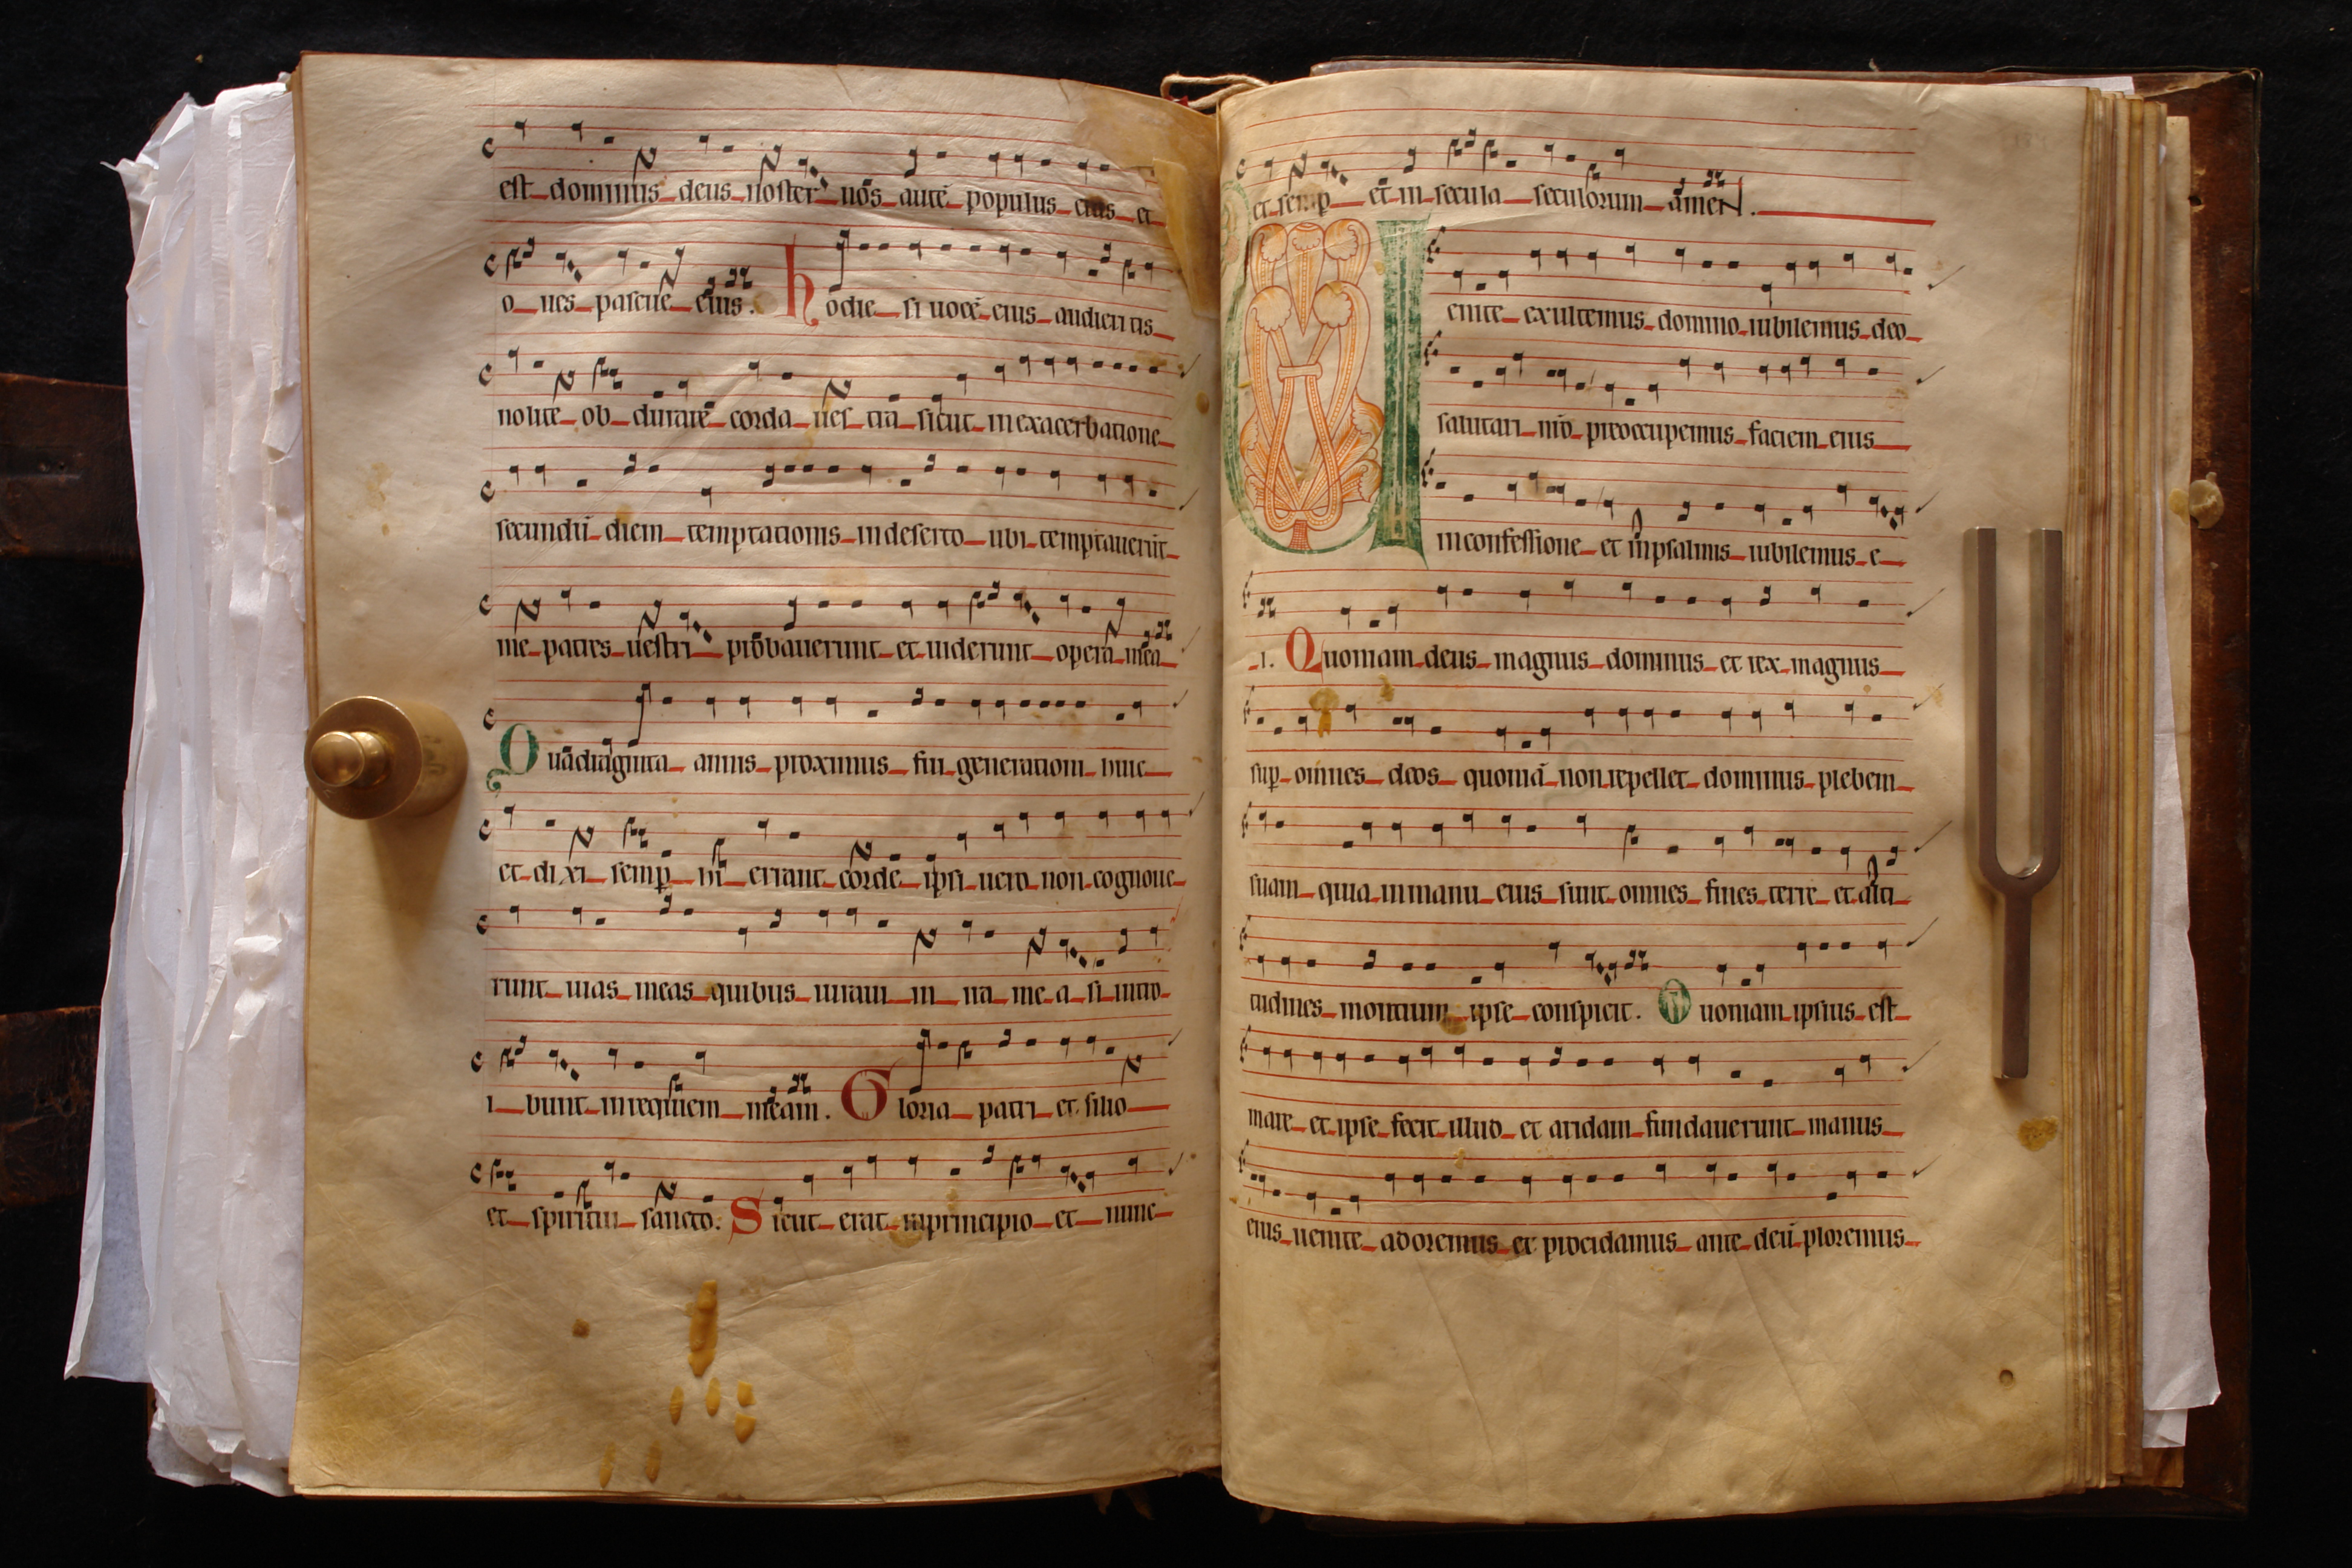 est dominus deus noster nos autē populus eius et
o ues pascue eius. hodie si uocē eius audieritis
nolite ob durare corda ues tra sicut in exacerbatione
secundū diem temptationis in deserto ubi temptauerūt
me patres uestri probauerunt et uiderunt opera mea
Quadraginta annis proximus fui generationi huic
et dixi semp hi errant corde ipsi uero non cognoue
runt uias meas quibus iuraui in ira me a si intro
i bunt in requiem meam. Gloria patri et filio
et spiritui sancto. Sicut erat in principio et nunc
et semp et in secula seculorum amen.
Uenite exultemus domino iubilemus deo
salutari nr̄o preoccupemus faciem eius
in confessione et in psalmis iubilemus e
i. Quoniam deus magnus dominus et rex magnus
sup omnes deos quoniā non repellet dominus plebem
suam quia in manu eius sunt omnes fines terre et alti
tudines montium ipse conspicit. Quoniam ipsius est
mare et ipse fecit illud et aridam fundauerunt manus
eius uenite adoremus et procidamus ante deū ploremus